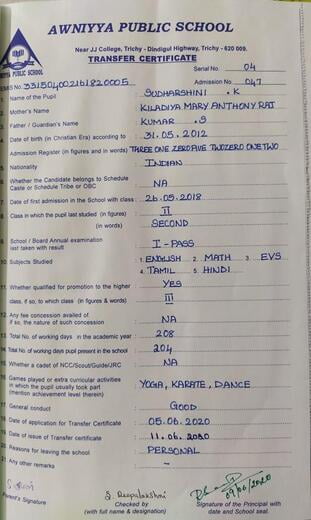 AWNIYYA PUBLIC SCHOOL
Near JJ College, Trichy - Dindigul Highway, Trichy - 620 009.
TRANSFER CERTIFICATE
AWNIYYA PUBLIC SCHOOL
Serial No. 04
EMIS No. 331504002161820005 Admission No. 047
1. Name of the Pupil : SUDHARSHINI . K
2. Mother's Name : KILADIYA MARY ANTHONY RAJ
3. Father / Guardian's Name : KUMAR . S
4. Date of birth (in Christian Era) according to : 31.05.2012
Admission Register (in figures and in words) THREE ONE ZERO FIVE TWO ZERO ONE TWO
5. Nationality : INDIAN
6. Whether the Candidate belongs to Schedule
Caste or Schedule Tribe or OBC : NA
7. Date of first admission in the School with class : 26.05.2018
8. Class in which the pupil last studied (in figures) : II
(in words) : SECOND
9. School / Board Annual examination
last taken with result : I - PASS
10. Subjects Studied : 1. ENGLISH 2. MATH 3. EVS
4. TAMIL 5. HINDI
11. Whether qualified for promotion to the higher : YES
class, if so, to which class (in figures & words) : III
12. Any fee concession availed of
if so, the nature of such concession : NA
13. Total No. of working days in the academic year : 208
14. Total No. of working days pupil present in the school : 204
15. Whether a cadet of NCC/Scout/Guide/JRC : NA
16. Games played or extra curricular activities
in which the pupil usually took part : YOGA, KARATE, DANCE
(mention achievement level therein)
17. General conduct : GOOD
18. Date of application for Transfer Certificate : 05.06.2020
19. Date of issue of Transfer certificate : 11.06.2020
20. Reasons for leaving the school : PERSONAL
21. Any other remarks : -
09/06/2020
Parent's Signature
S. Deepalakshmi
Checked by
(with full name & designation)
Signature of the Principal with
date and School seal.